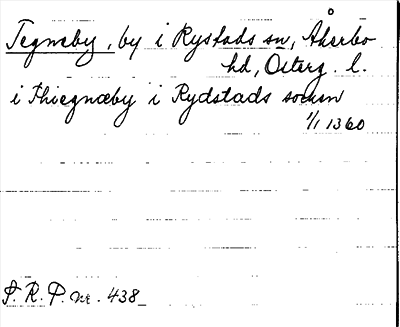 Tegneby, by i Rystads sn, Åkerbo
hd, Österg. l.
i Thiegnæby i Rydstads socken
1/1 1360
S. R. P. nr. 438